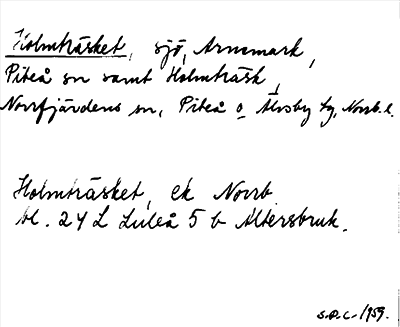 Holmträsket, sjö, Arnemark,
Piteå sn samt Holmträsk,
Norrfjärdens sn, Piteå o Älvsby tg, Norrb. l.
Holmträsket, ek Norrb.
bl. 24 L Luleå 5 b Altersbruk.
S.P.C. 1959.